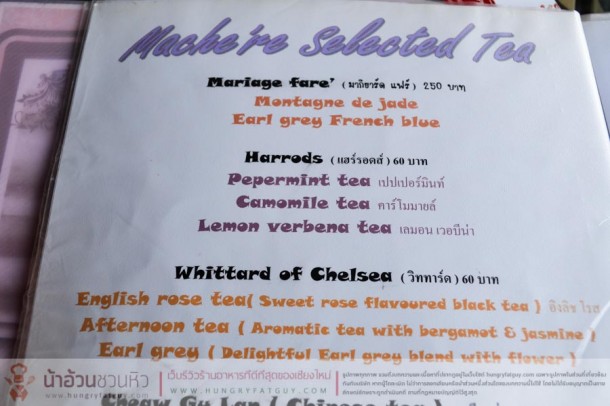 Mache're Selected Tea
Mariage fare' ( มาถิยาร์ด แฟร์ ) 250 บาท
Montagne de jade
Earl grey French blue
Harrods ( แฮร์รอดส์ ) 60 บาท
Pepermint tea เปปเปอร์มินท์
Camomile tea คาร์โมมายล์
Lemon verbena tea เลมอน เวอบีน่า
Whittard of Chelsea ( วิททาร์ด ) 60 บาท
English rose tea( Sweet rose flavoured black tea ) อิงลิช โรส
Afternoon tea ( Aromatic tea with bergamot & jasmine )
Earl grey ( Delightful Earl grey blend with flower )
น้าอ้วนชวนหิว
www.hungryfatguy.com
เว็บรีวิวร้านอาหารที่ดีที่สุดของเชียงใหม่
WWW.HUNGRYFATGUY.COM